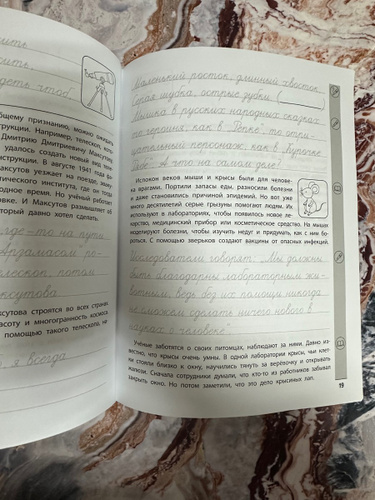 сить
сить,
деть, чтоб
общему признанию, можно ожидать
струкции. Например, телескоп, кото
Дмитрию Дмитриевичу Максутову
удалось создать новый вид линз
нструкции. В августе 1941 года В
ксутов уезжает на поезде в эваку
птического института, где он тогда
водное время. Но учёный работает
овке. И Максутов размышляет об
торый давно хотел сделать.
где-то на пути
Арзамасом" по-
елескоп, потом
ксутова
ксутова строятся во всех страна
асоту и многогранность космоса
с помощью такого телескопа, не
я всегда
Маленький росток, длинный хвосток,
Серая шубка, острые зубки. (
Мышка в русских народных сказках
то героиня, как в "Репке", то отри-
цательный персонаж, как в "Курочке
Рябе". А что на самом деле?
Испокон веков мыши и крысы были для челове-
ка врагами. Портили запасы еды, разносили болезни
и даже становились причиной эпидемий. Но вот уже
много десятилетий серые грызуны помогают людям. Их
используют в лабораториях, чтобы появилось новое ле-
карство, медицинский прибор или косметическое средство. На мышах
моделируют болезни, чтобы изучить недуг и придумать, как с ним бо-
роться. С помощью зверьков создают вакцины от опасных инфекций.
Исследователи говорят: "Мы должны
быть благодарны лабораторным жи-
вотным, ведь без их помощи никогда
не сможем сделать ничего нового в
науках о человеке".
Учёные заботятся о своих питомцах, наблюдают за ними. Давно из-
вестно, что крысы очень умны. В одной лаборатории крысы, чьи клет-
ки стояли близко к окну, научились тянуть за верёвочку и открывать
жалюзи. Сначала сотрудники думали, что кто-то из работников забывал
закрыть окно. Но потом заметили, что это дело крысиных лап.
19